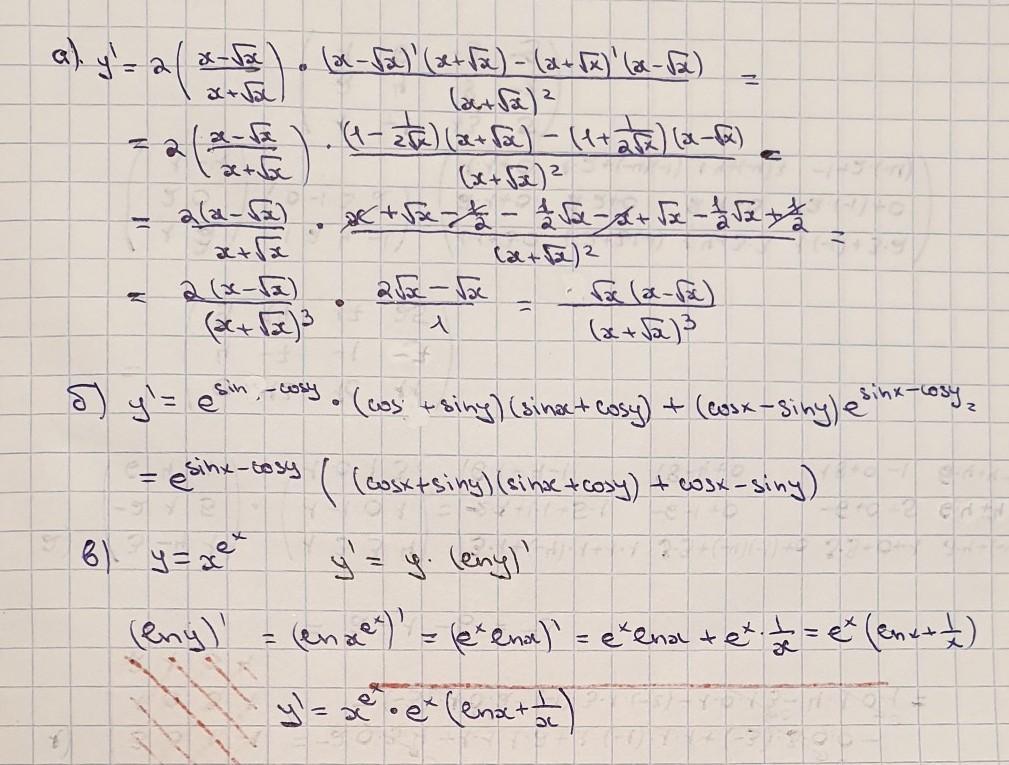 а). y' = 2((x-√x)/(x+√x)) · ((x-√x)'(x+√x) - (x+√x)'(x-√x))/(x+√x)² =
= 2((x-√x)/(x+√x)) · ((1-1/(2√x))(x+√x) - (1+1/(2√x))(x-√x))/(x+√x)² =
= 2(x-√x)/(x+√x) · (x+√x-1/2-1/2√x-x+√x-1/2√x+1/2)/(x+√x)² =
= 2(x-√x)/(x+√x)³ · (2√x-√x)/1 = √x(x-√x)/(x+√x)³
б) y' = e^(sin -cosy) · (cos +siny)(sinx+cosy) + (cosx-siny)e^(sinx-cosy) =
= e^(sinx-cosy) ((cosx+siny)(sinx+cosy) + cosx-siny)
в). y = x^(e^x) y' = y · (lny)'
(lny)' = (lnx^(e^x))' = (e^x lnx)' = e^x lnx + e^x · 1/x = e^x (lnx + 1/x)
y' = x^(e^x) · e^x (lnx + 1/x)